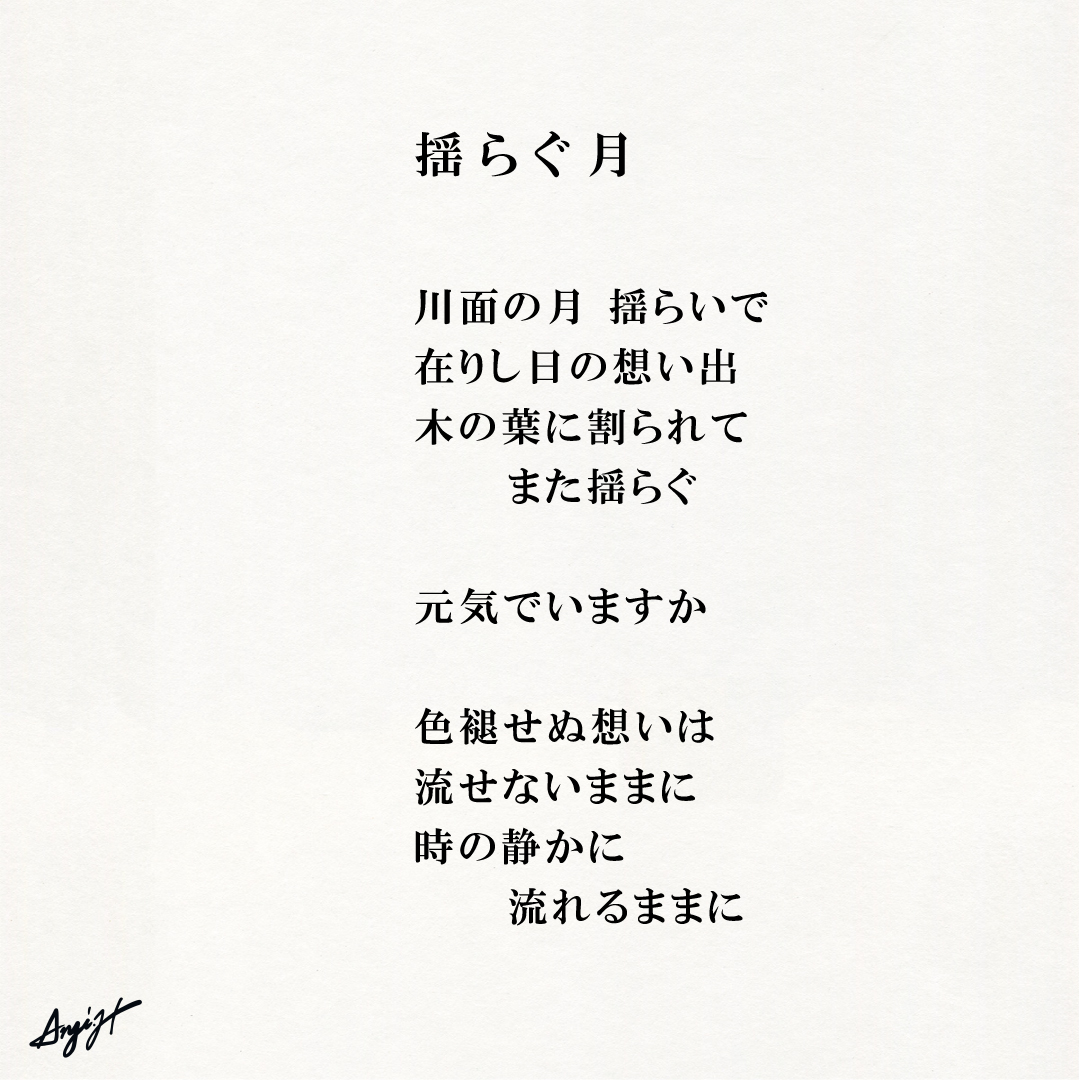 揺らぐ月
川面の月 揺らいで
在りし日の想い出
木の葉に割られて
また揺らぐ
元気でいますか
色褪せぬ想いは
流せないままに
時の静かに
流れるままに